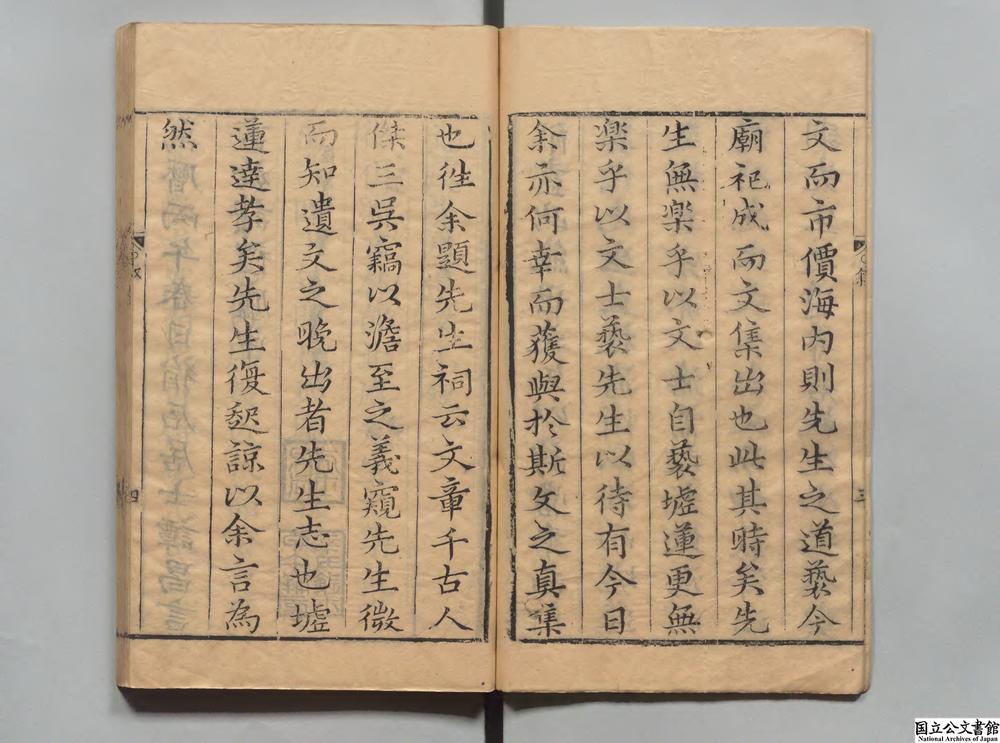 文而市價海内則先生之道褻今
廟祀成而文集出也此其時矣先
生無楽乎以文士自褻墟蓮更無
楽乎以文士褻先生以待有今日
余亦何幸而獲與扵斯文之真集
也徃余題先生祠云文章千古人
傑三吳竊以澹至之義窺先生微
而知遺文之晩出者先生志也墟
蓮達孝矣先生復起諒以余言為
然
三
四
国立公文書館
National Archives of Japan